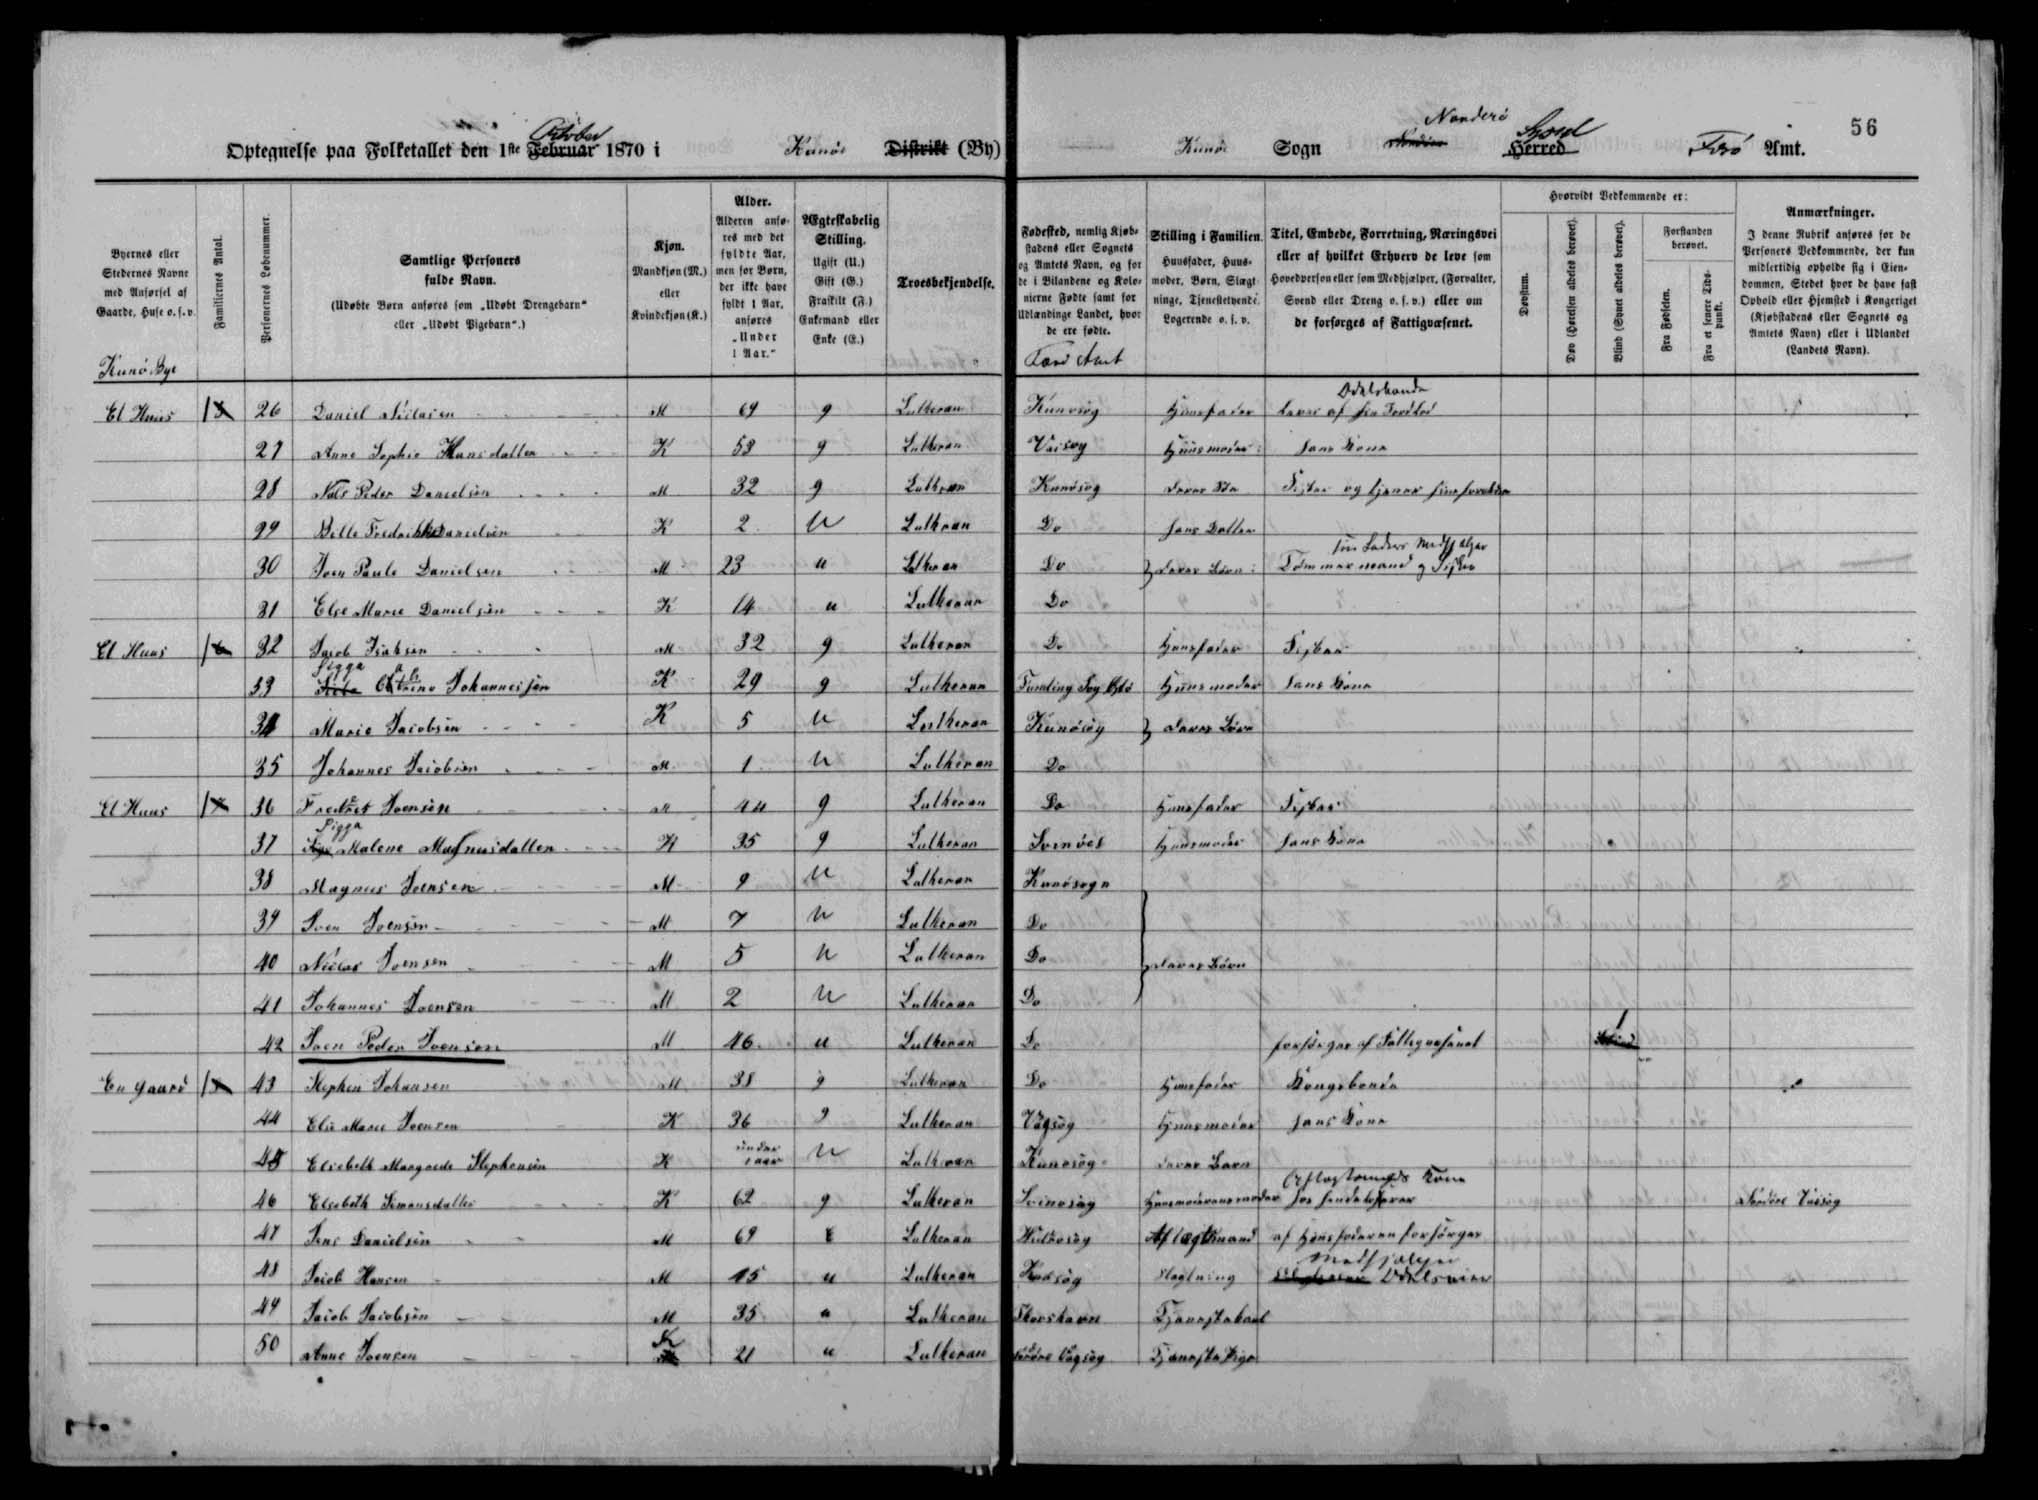 56
October Norderö Syssel
Optegnelse paa Folketallet den 1ste Februar 1870 i Kunöe Distrikt (By) Kunöe Sogn Herred Færö Amt.
Byernes eller Stedernes Navne med Anførsel af Gaarde, Huse o. s. v.
Familiernes Antal.
Personernes Løbenummer.
Samtlige Personers fulde Navn.
(Udøbte Børn anføres som „Udøbt Drengebarn“ eller „Udøbt Pigebarn“.)
Kjøn.
Mandkjøn (M.) eller Kvindekjøn (K.)
Alder.
Alderen anføres med det fyldte Aar, men for Børn, der ikke have fyldt 1 Aar, anføres „Under 1 Aar.“
Ægteskabelig Stilling.
Ugift (U.) Gift (G.) Fraskilt (F.) Enkemand eller Enke (E.)
Troesbekjendelse.
Fødested, nemlig Kjøbstadens eller Sognets og Amtets Navn, og for de i Bilandene og Kolonierne Fødte samt for Udlændinge Landet, hvor de ere fødte.
Stilling i Familien.
Huusfader, Huusmoder, Børn, Slægtninge, Tjenestetyende, Logerende o. s. v.
Titel, Embede, Forretning, Næringsvei eller af hvilket Erhverv de leve som Hovedperson eller som Medhjælper, (Forvalter, Svend eller Dreng o. s. v.) eller om de forsørges af Fattigvæsenet.
Hvorvidt Vedkommende er:
Døvstum.
Døv (Hørelsen aldeles berøvet).
Blind (Synet aldeles berøvet).
Forstanden berøvet.
Fra Fødselen.
Fra et senere Tidspunkt.
Anmærkninger.
I denne Rubrik anføres for de Personers Vedkommende, der kun midlertidig opholde sig i Eiendommen, Stedet hvor de have fast Ophold eller Hjemsted i Kongeriget (Kjøbstadens eller Sognets og Amtets Navn) eller i Udlandet (Landets Navn).
Kunö Bye Færö Amt
Et Huus 26 Daniel Niclasen M 69 g Lutheran Kunosog Huusfader Odelsbonde lever af sin Jordlod
27 Anne Sophie Hansdatter K 53 g Lutheran Vaisog Huusmoder hans Kone
28 Nils Peder Danielsen M 32 g Lutheran Kunösog deres Fisker og tjener
29 Bille Fredrikke Danielsen K 2 U Lutheran Do hans Datter
30 Joen Paule Danielsen M 23 u Lutheran Do deres Börn sin Faders Medhjelper Tömmermand og Fisker
31 Else Marie Danielsen K 14 u Lutheran Do
Et Huus 32 Jacob Isaksen M 32 g Lutheran Do Huusfader Fisker
33 Sigga Johannessen K 29 g Lutheran Funding Sog Östö Huusmoder hans Kone
34 Marie Jacobsen K 5 U Lutheran Kunösog deres Börn
35 Johannes Jacobsen M 1 U Lutheran Do
Et Huus 36 Joensen M 44 g Lutheran Do Huusfader Fisker
37 Sigga Malene Magnusdatter K 35 g Lutheran Svinöes Huusmoder hans Kone
38 Magnus Joensen M 9 U Lutheran Kunosogn
39 Joen Joensen M 7 U Lutheran Do
40 Niclas Joensen M 5 U Lutheran Do deres Börn
41 Johannes Joensen M 2 U Lutheran Do
42 Joen Peder Joensen M 46 u Lutheran Do forsörges af Fattigvæsenet 1
En Gaard 43 Stephen Johansen M 38 g Lutheran Do Huusfader Kongsbonde
44 Else Marie Joensen K 36 g Lutheran Vågsög Huusmoder hans Kone
45 Elsebeth Margrede Stephensen K under 1 aar U Lutheran Kunosog deres Barn
46 Elsebeth Simonsdatter K 62 g Lutheran Svinosog Huusmoderens moder Aftægtsmands Kone Vaisog
47 Jens Danielsen M 69 E Lutheran Aftægtsmand af Huusfaderen forsörges
48 Jacob Hansen M 15 u Lutheran Slægtning Medhjælper
49 Jacob Jacobsen M 35 u Lutheran Thorshavn Tjenestekarl
50 Anne Joensen K 21 u Lutheran Vågsög Tjeneste Pige